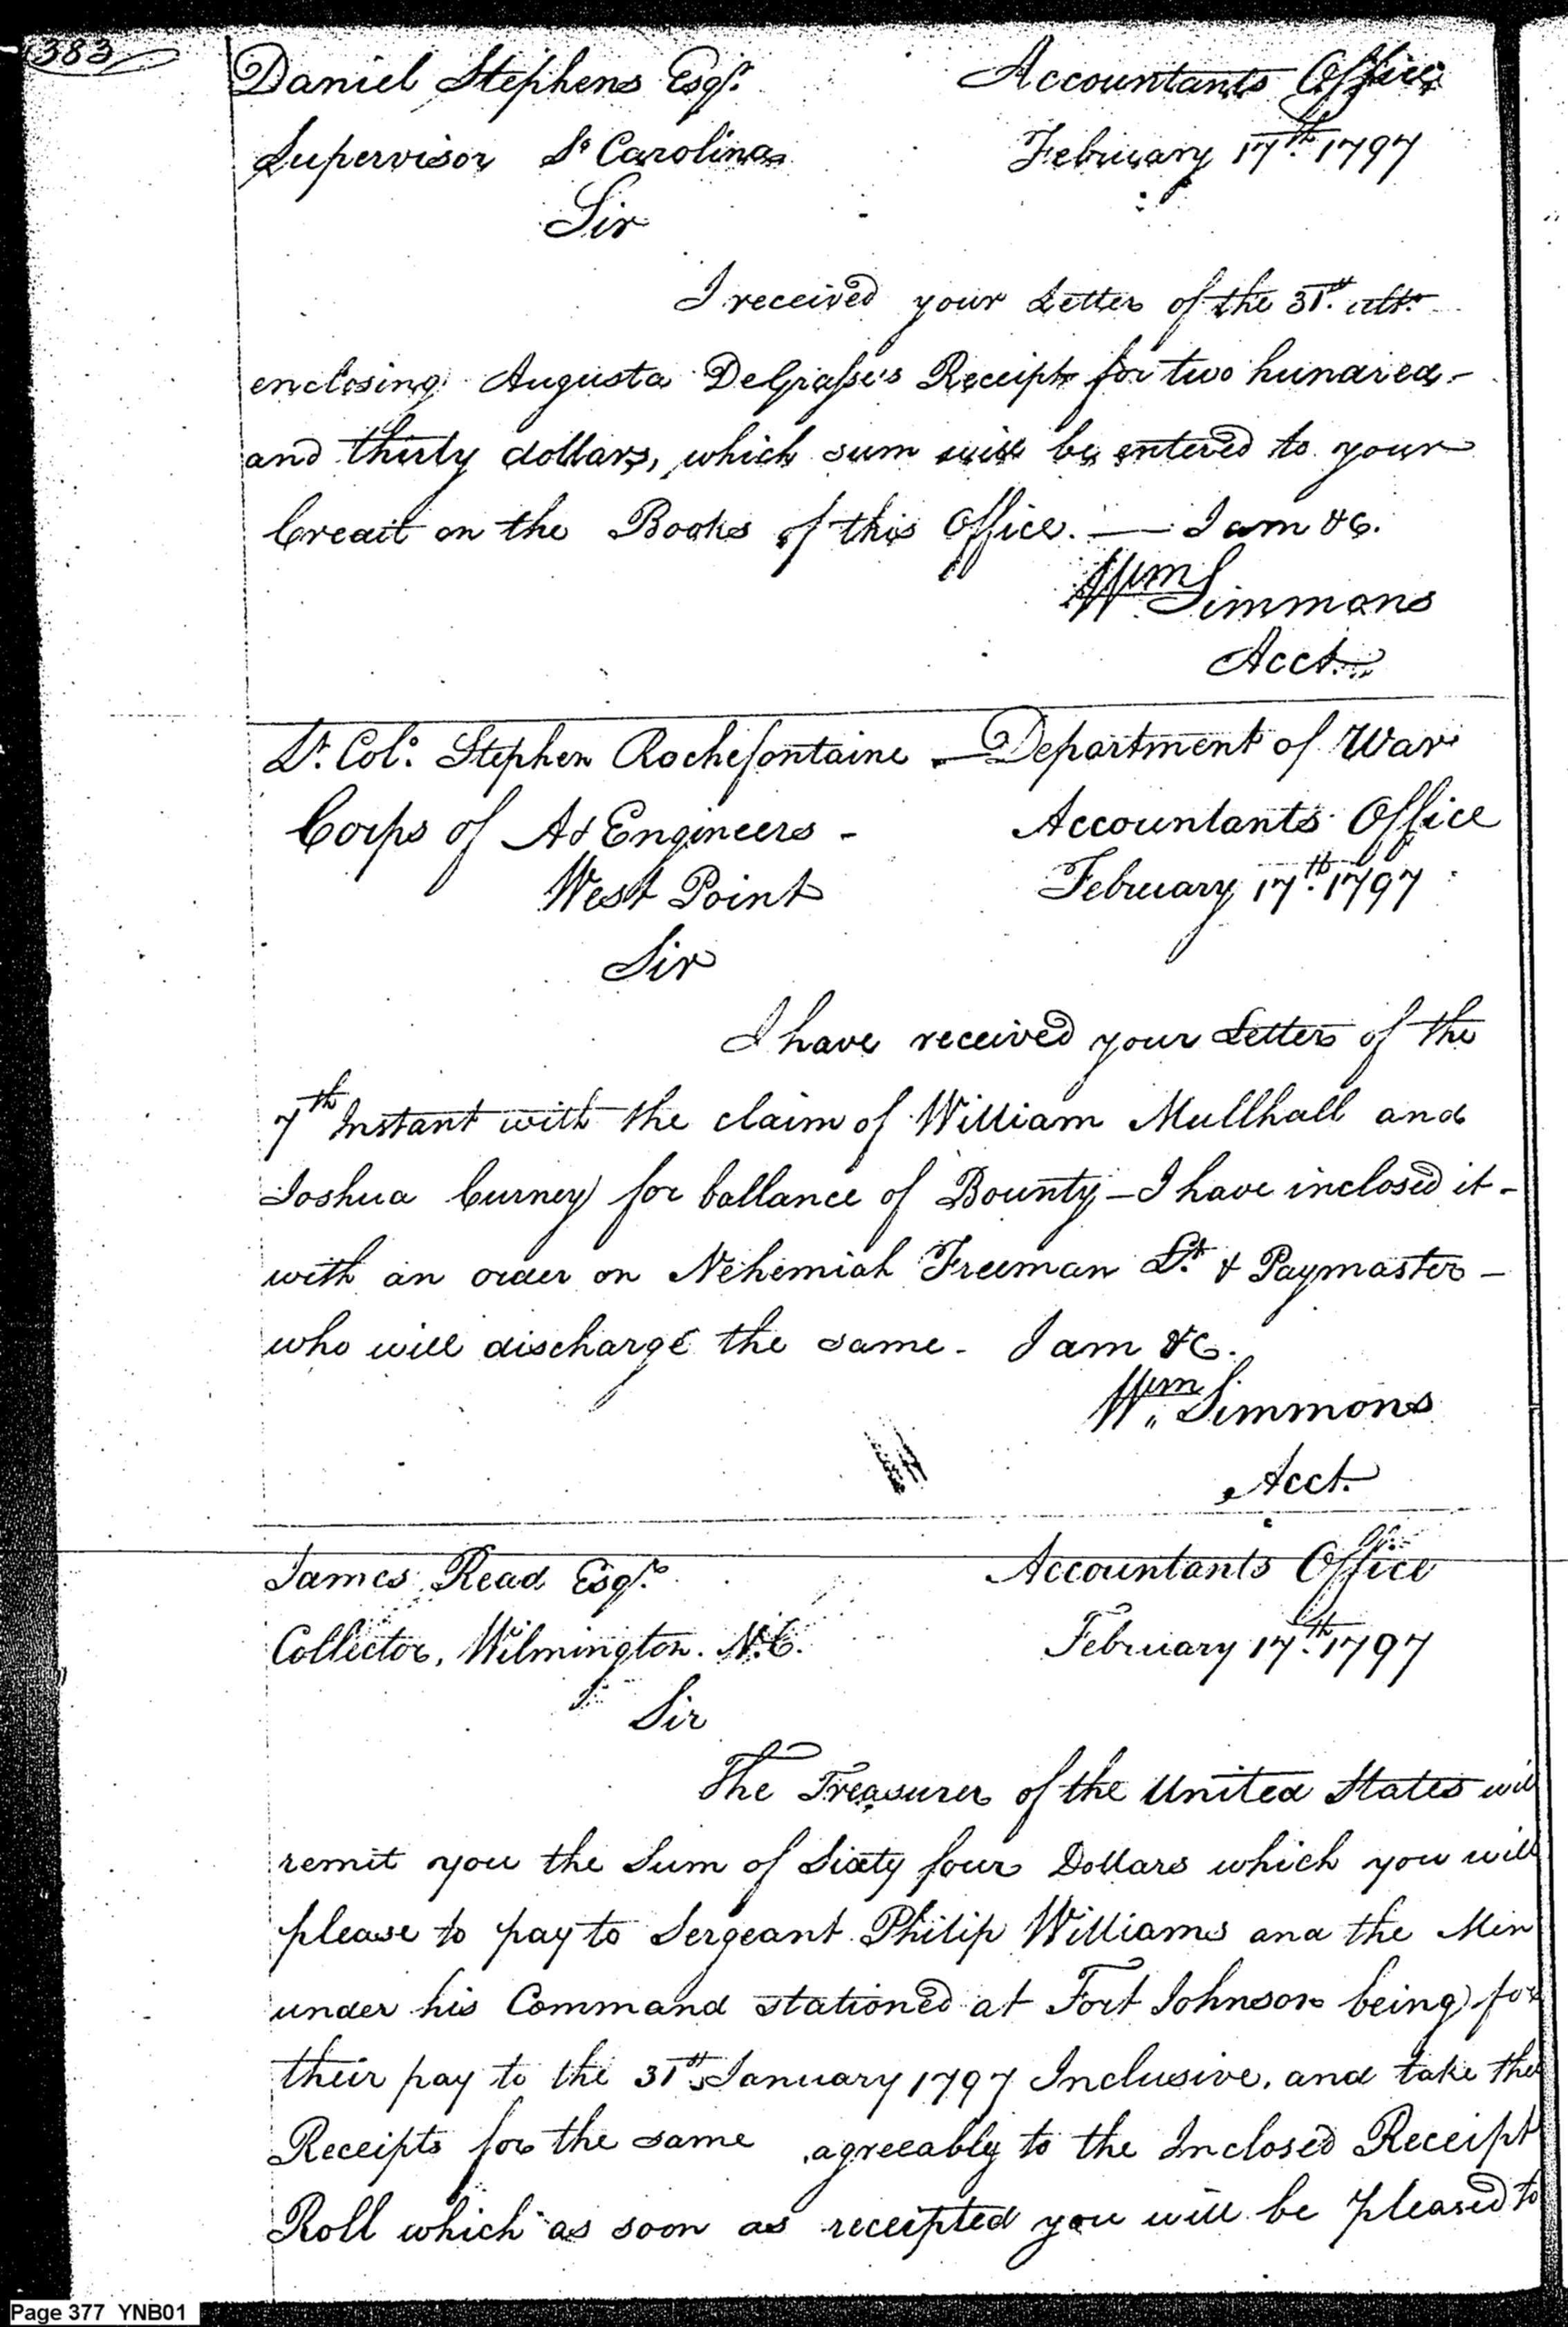 383
Daniel Stephens Esqr. Accountants Office
Supervisor So Carolina February 17th. 1797
Sir
I received your Letter of the 31st. ulto.
enclosing Augusta DeGrasse's Receipt for two hundred -
and thirty dollars, which sum will be entered to your
Credit on the Books of this Office. — I am &c.
Wm Simmons
Acct.
Lt. Colo. Stephen Rochefontaine — Department of War
Corps of A & Engineers - Accountants Office
West Point February 17th. 1797
Sir
I have received your Letter of the
7th Instant with the claim of William Mullhall and
Joshua Curney for ballance of Bounty — I have inclosed it -
with an order on Nehemiah Freeman Lt. & Paymaster -
who will discharge the same - I am &c.
Wm. Simmons
Acct.
James Read Esqr. Accountants Office
Collector, Wilmington. N.C. February 17th. 1797
Sir
The Treasurer of the United States will
remit you the Sum of Sixty four Dollars which you will
please to pay to Sergeant Philip Williams and the Men
under his Command stationed at Fort Johnson being for
their pay to the 31st January 1797 Inclusive, and take the
Receipts for the same agreeably to the Inclosed Receipt
Roll which as soon as receipted you will be pleased to
Page 377 YNB01